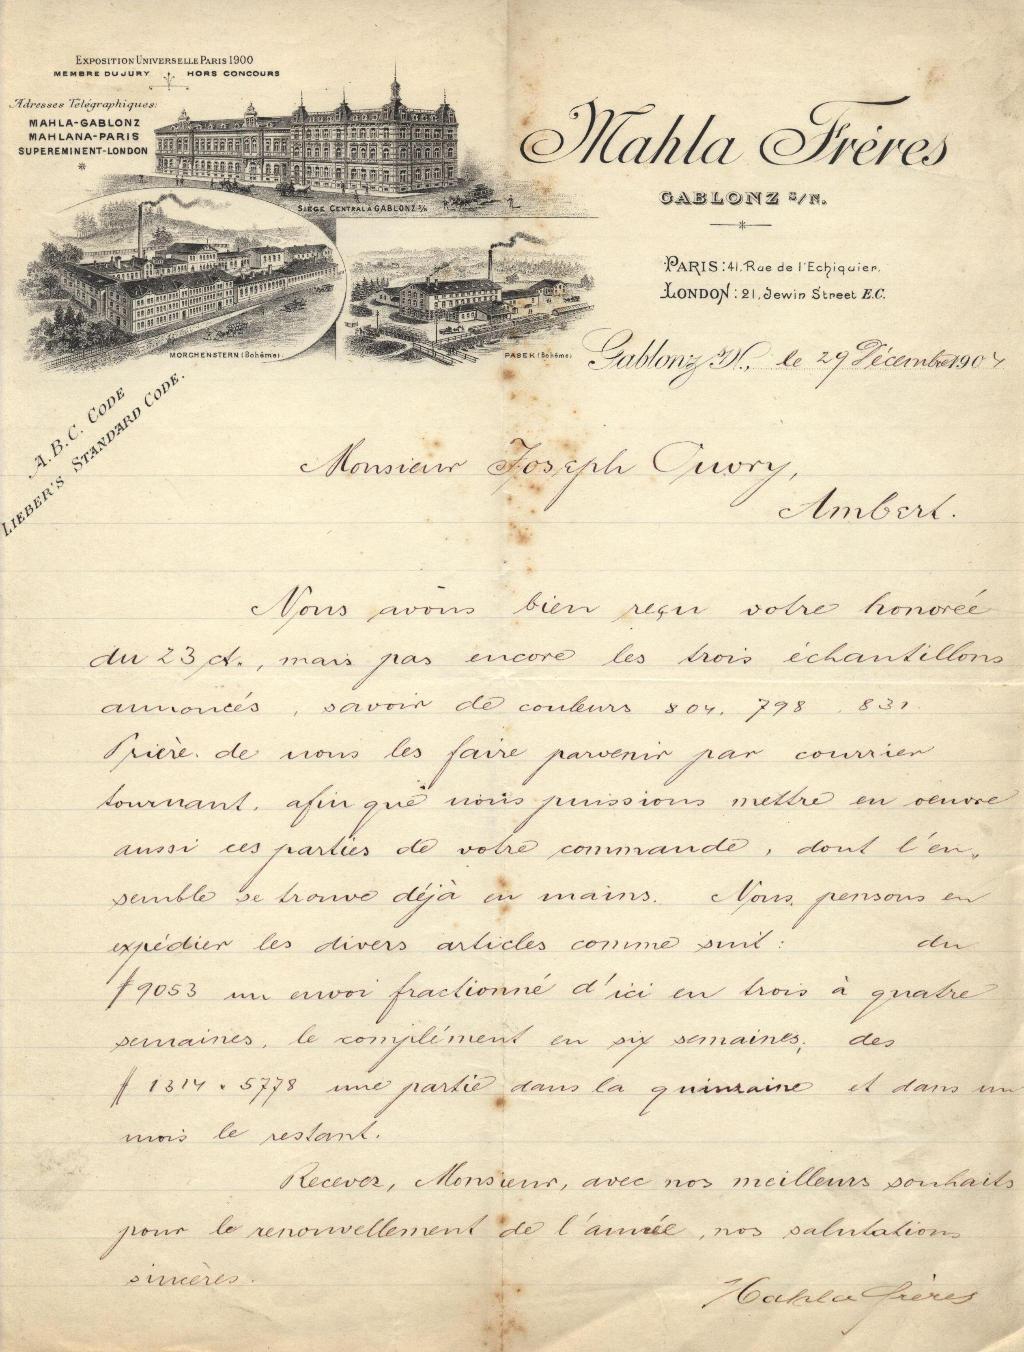 EXPOSITION UNIVERSELLE PARIS 1900
MEMBRE DU JURY HORS CONCOURS
Adresses Télégraphiques:
MAHLA-GABLONZ
MAHLANA-PARIS
SUPEREMINENT-LONDON
SIÈGE CENTRAL À GABLONZ s/N
MORCHENSTERN (Bohême)
PASEK (Bohême)
A.B.C. CODE
LIEBER'S STANDARD CODE.
Mahla Frères
GABLONZ S/N.
PARIS: 41, Rue de l'Echiquier.
LONDON: 21, Jewin Street E.C.
Gablonz s/N., le 29 Décembre 1904
Monsieur Joseph Ouvry,
Ambert.
Nous avons bien reçu votre honorée
du 23 ct., mais pas encore les trois échantillons
annoncés, savoir de couleurs 804, 798, 831.
Prière de nous les faire parvenir par courrier
tournant, afin que nous puissions mettre en oeuvre
aussi ces parties de votre commande, dont l'en-
semble se trouve déjà en mains. Nous pensons en
expédier les divers articles comme suit: du
# 9053 un envoi fractionné d'ici en trois à quatre
semaines, le complément en six semaines; des
# 1314 . 5778 une partie dans la quinzaine et dans un
mois le restant.
Recevez, Monsieur, avec nos meilleurs souhaits
pour le renouvellement de l'année, nos salutations
sincères.
Mahla frères